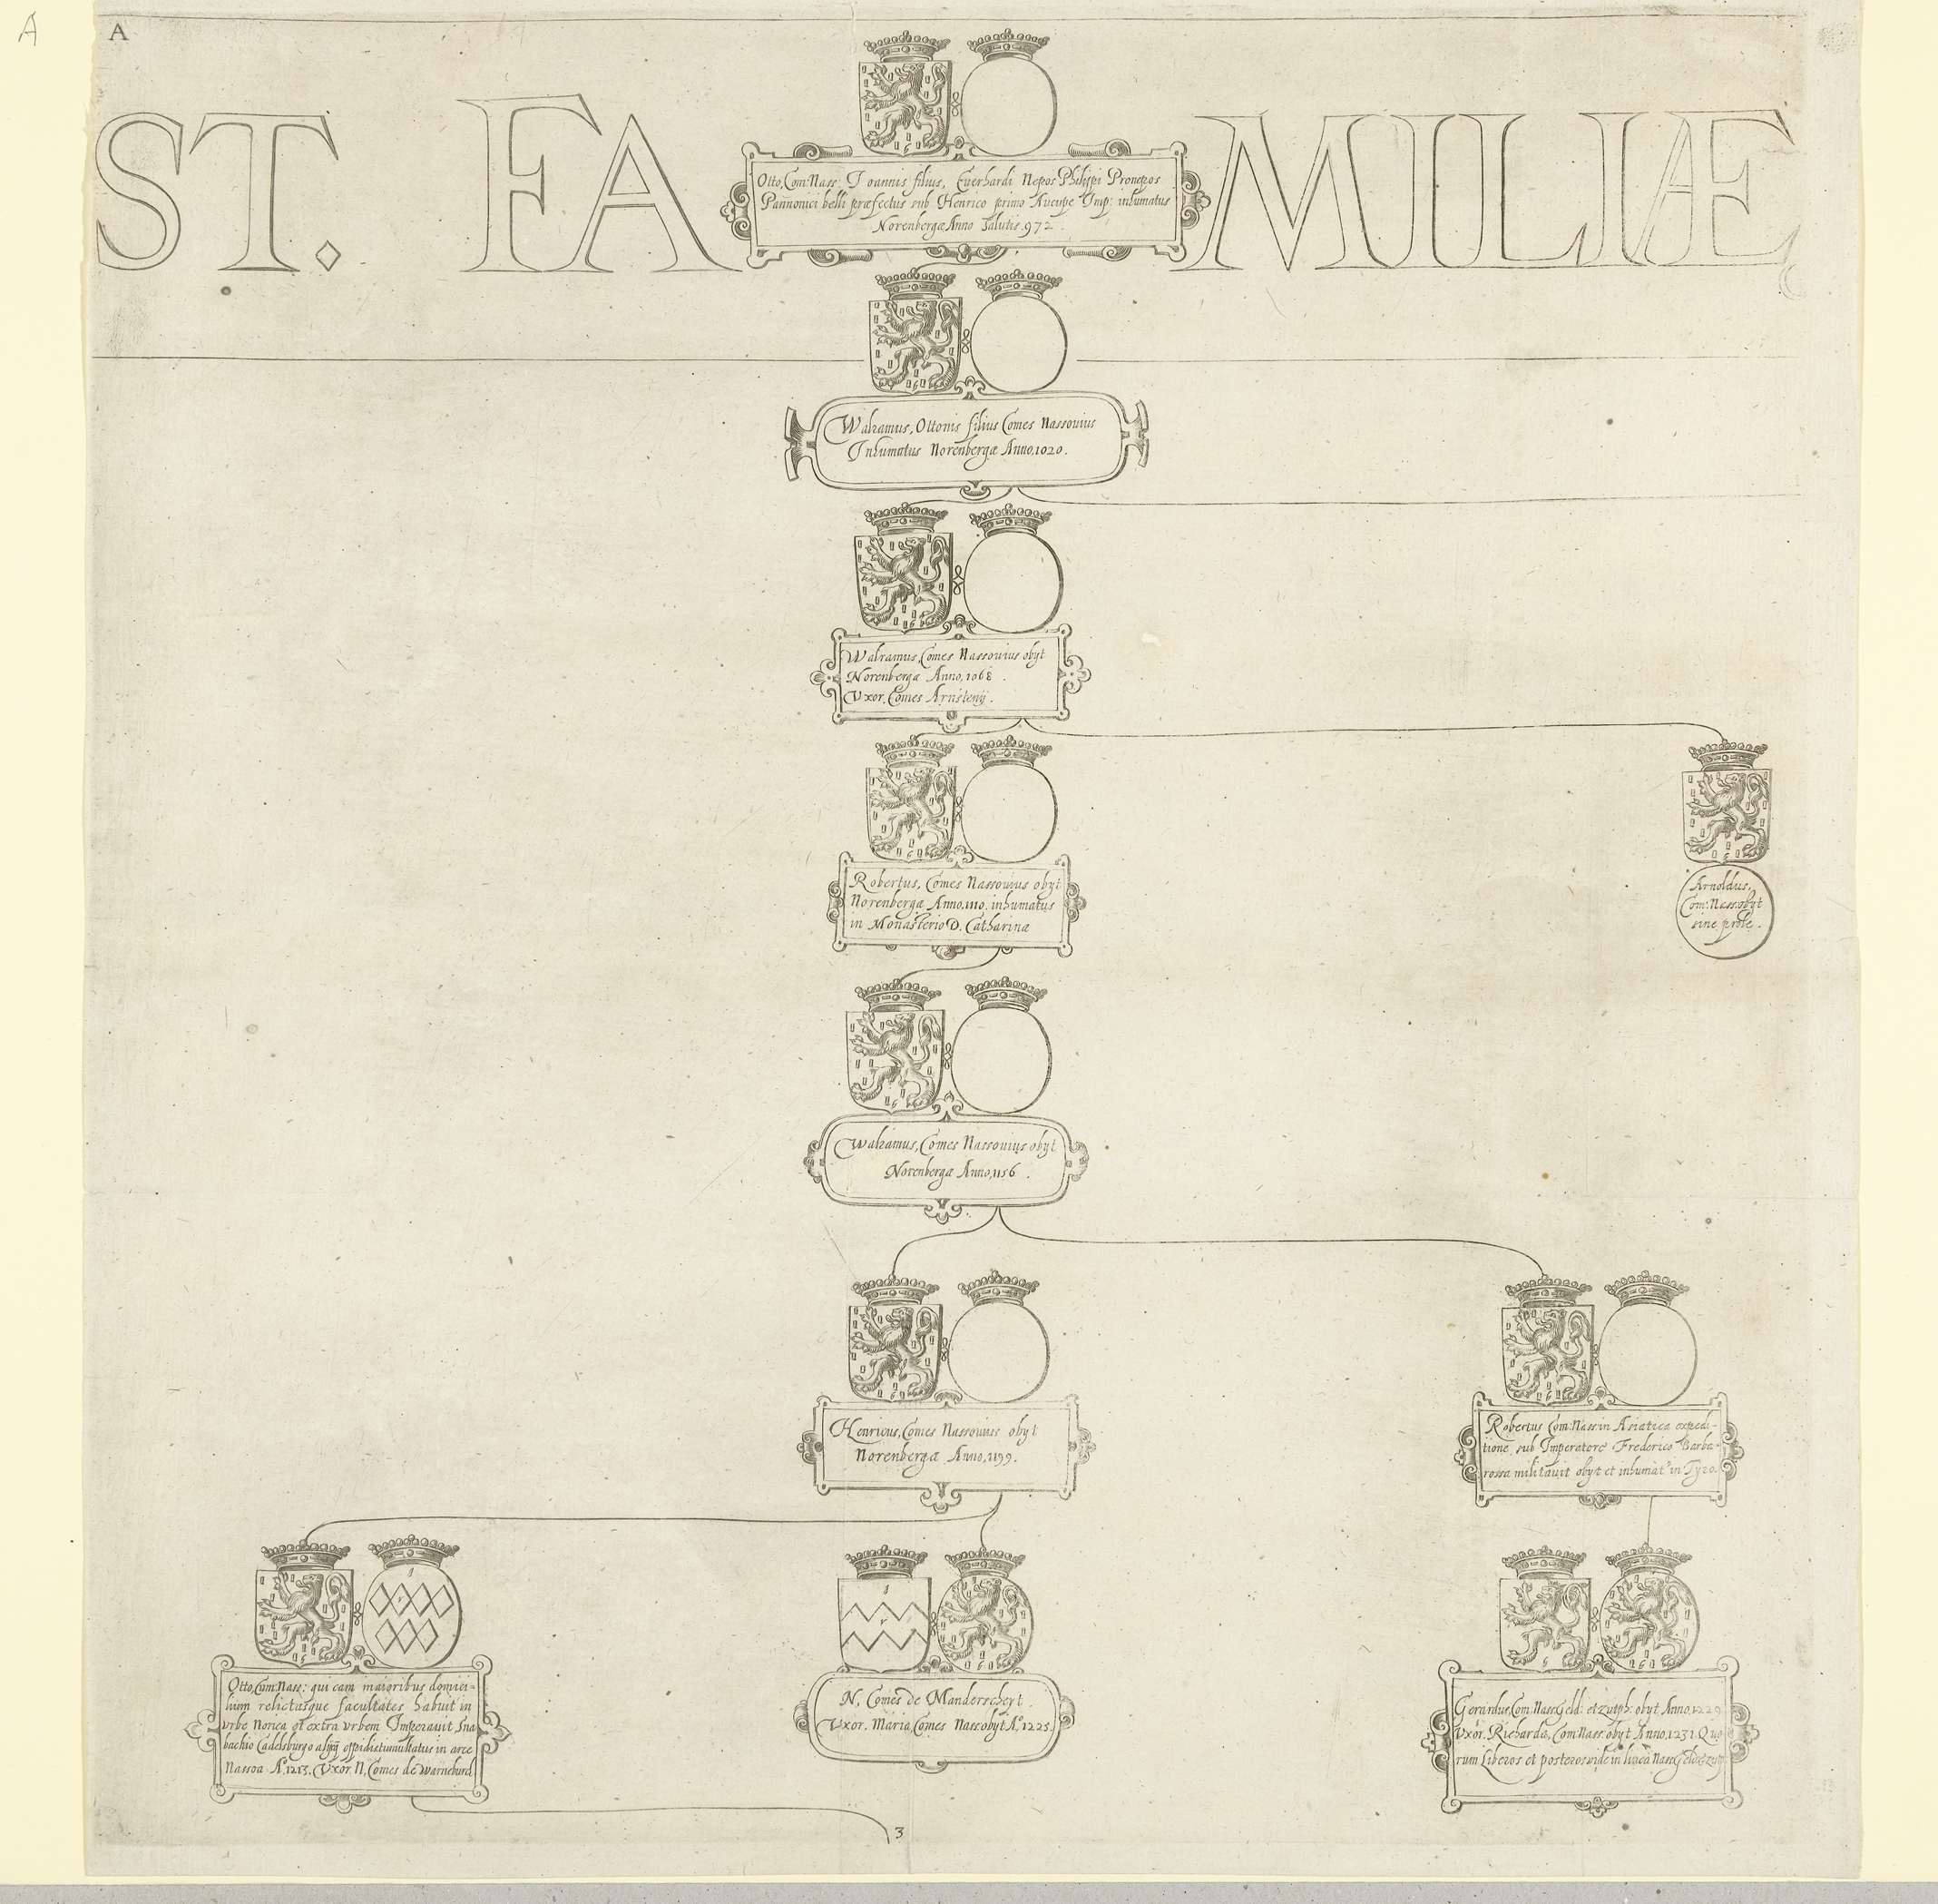 A
A
ST. FAMILIÆ
Otto, Com: Nass: Joannis filius, Everhardi Nepos Philippi Pronepos
Pannonici belli præfectus sub Henrico primo Aucupe Imp: inhumatus
Norenbergæ Anno Salutis. 972.
Walramus, Ottonis filius Comes Nassouius
Inhumatus Norenbergæ Anno, 1020.
Walramus, Comes Nassouius obyt
Norenbergæ Anno, 1068.
Vxor, Comes Arnstenÿ.
Robertus, Comes Nassouius obyt
Norenbergæ Anno, 1110. inhumatus
in Monasterio D. Catharinæ
Arnoldus,
Com: Nass: obyt
sine prole.
Walramus, Comes Nassouius obyt
Norenbergæ Anno, 1156.
Henricus, Comes Nassouius obyt
Norenbergæ Anno, 1199.
Robertus Com: Nass: in Asiatica expedi-
tione sub Imperatore Frederico Barba-
rossa militauit obyt et inhumat in Tyro.
Otto, Com: Nass: qui cam maioribus domici-
lium relictasque facultates habuit in
vrbe Norica et extra vrbem Imperauit
bachio Cadelsburgo in arce
Nassoa Aº. 1213. Vxor N. Comes de Warneburch
N. Comes de Manderscheyt.
Vxor. Maria, Comes Nass: obyt Aº. 1225.
Gerardus, Com: Nass: Geld: et zutph: obyt Anno, 1229.
Vxor. Richarda, Com: Nass: obyt Anno, 1231. Quo-
rum Liberos et posteros vide in linea Nass: Geld: et zutp
3